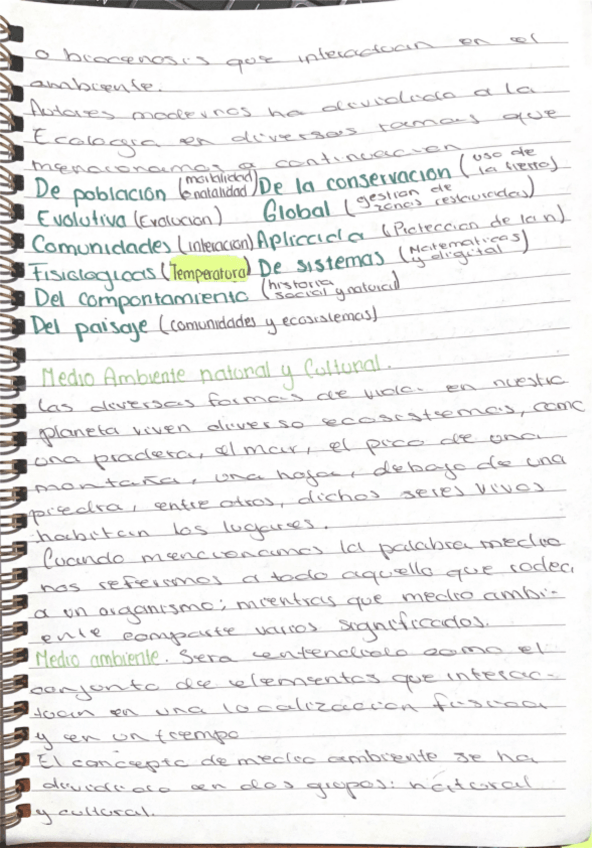 o biocenosis que interactuan en el
ambiente.
Autores modernos ha dividido a la
Ecología en diversas ramas que
mencionamos a continuación
De población (mortalidad e natalidad) De la conservación (uso de la tierra)
Evolutiva (Evolucion) Global (gestion de zonas restauradas)
Comunidades (interacion) Apliccida (Proteccion de la n)
Fisiologicas (Temperatura) De sistemas (Matematicos y digital)
Del comportamiento (historia social y natural)
Del paisaje (comunidades y ecosistemas)
Medio Ambiente natural y Cultural.
Las diversas formas de vida en nuestro
planeta viven diverso ecosistemas, como
una pradera, el mar, el pico de una
montaña, una hoja, debajo de una
piedra, entre otros, dichos seres vivos
habitan los lugares.
Cuando mencionamos la palabra medio
nos referimos a todo aquello que rodea
a un organismo; mientras que medio ambi-
ente comparte varios significados.
Medio ambiente. Sera entendido como el
conjunto de elementos que interac-
tuan en una localizacion fisica
y en un tiempo
El concepto de medio ambiente se ha
dividido en dos grupos: natural
y cultural.